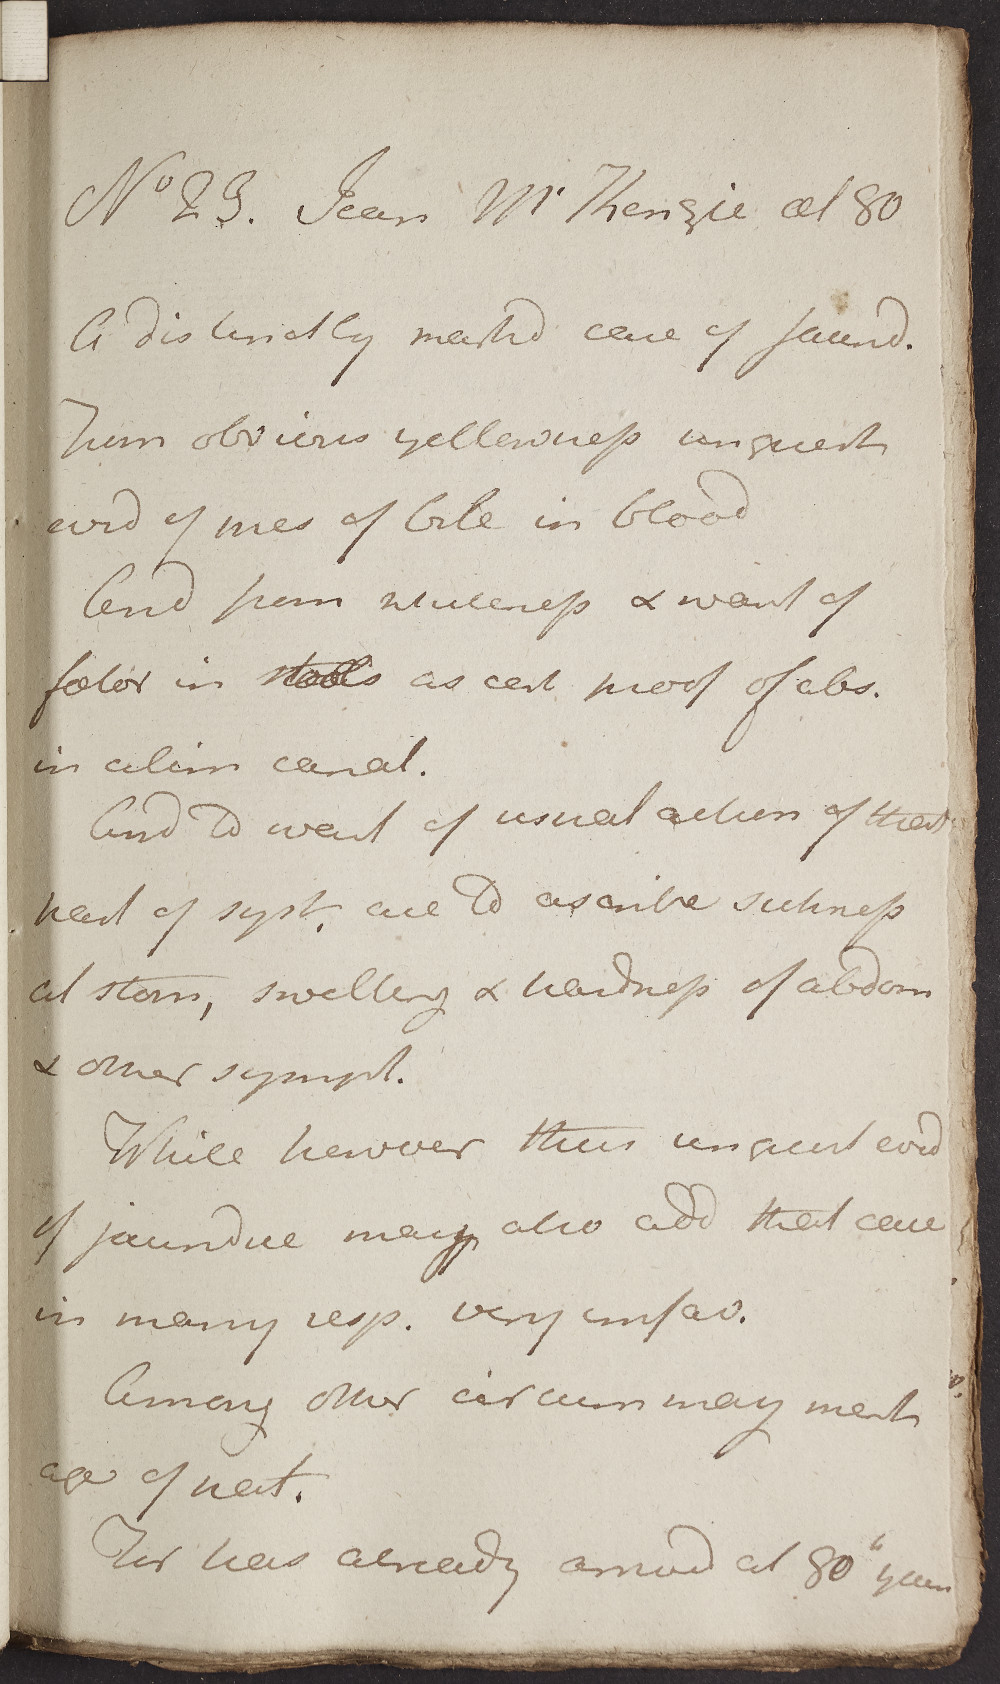 No 23. Jean McKenzie æt 80
A distinctly markd case of jaund.
From obvious yellowness unquest
evid of pres of bile in blood
And from whiteness & want of
fœtor in stools as cert proof of abs.
in alim canal.
And to want of usual action of that
part of syst, are to ascribe sickness
at stom, swelling & hardness of abdom
& other sympt.
While however thus unquest evid
of jaundice may also add that case
in many resp. very unfav.
Among other circum may ment
age of pat.
For has already arrived at 80th year